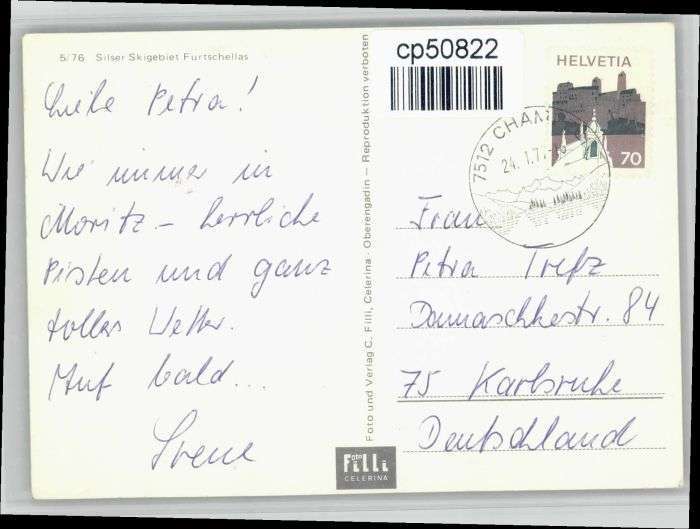 5/76 Silser Skigebiet Furtschellas
Liebe Petra!
Wie immer in
Moritz – herrliche
Pisten und ganz
tolles Wetter.
Auf bald...
Irene
Foto und Verlag C. Filli, Celerina · Oberengadin – Reproduktion verboten
Foto
Filli
CELERINA
cp50822
HELVETIA
70
7512 CHAM
24.1.7
Frau
Petra Trefz
Damaschkestr. 84
75 Karlsruhe
Deutschland